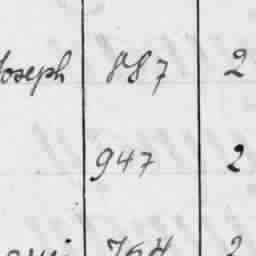 Joseph 887 2
947 2
764 2